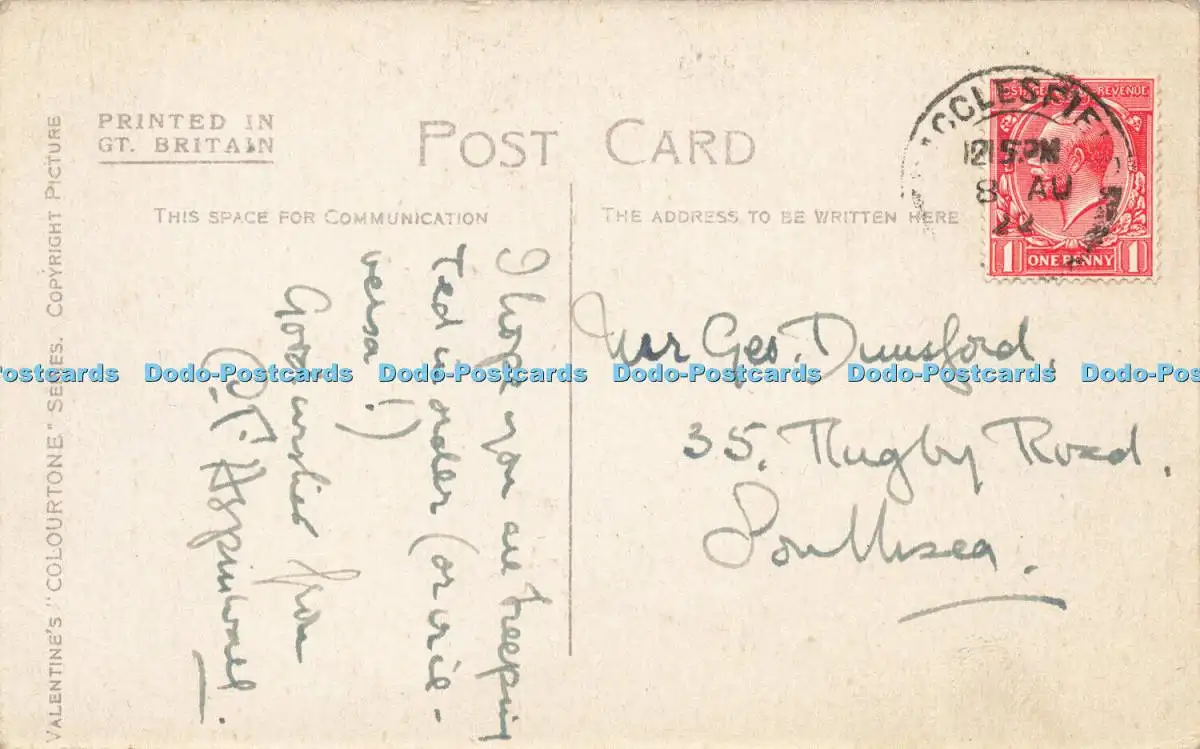 PRINTED IN
GT. BRITAIN
POST CARD
THIS SPACE FOR COMMUNICATION
THE ADDRESS TO BE WRITTEN HERE
VALENTINE'S "COLOURTONE" SERIES. COPYRIGHT PICTURE
CCLESFIE
1215PM
8 AU
22
POSTAGE REVENUE
1 ONE PENNY 1
I hope you are keeping
Ted in order (or vice-
versa!)
Good wishes from
T. Aspinwall.
Mr Geo. Dunsford,
35, Rugby Road,
Southsea.
Postcards Dodo-Postcards Dodo-Postcards Dodo-Postcards Dodo-Postcards Dodo-Post